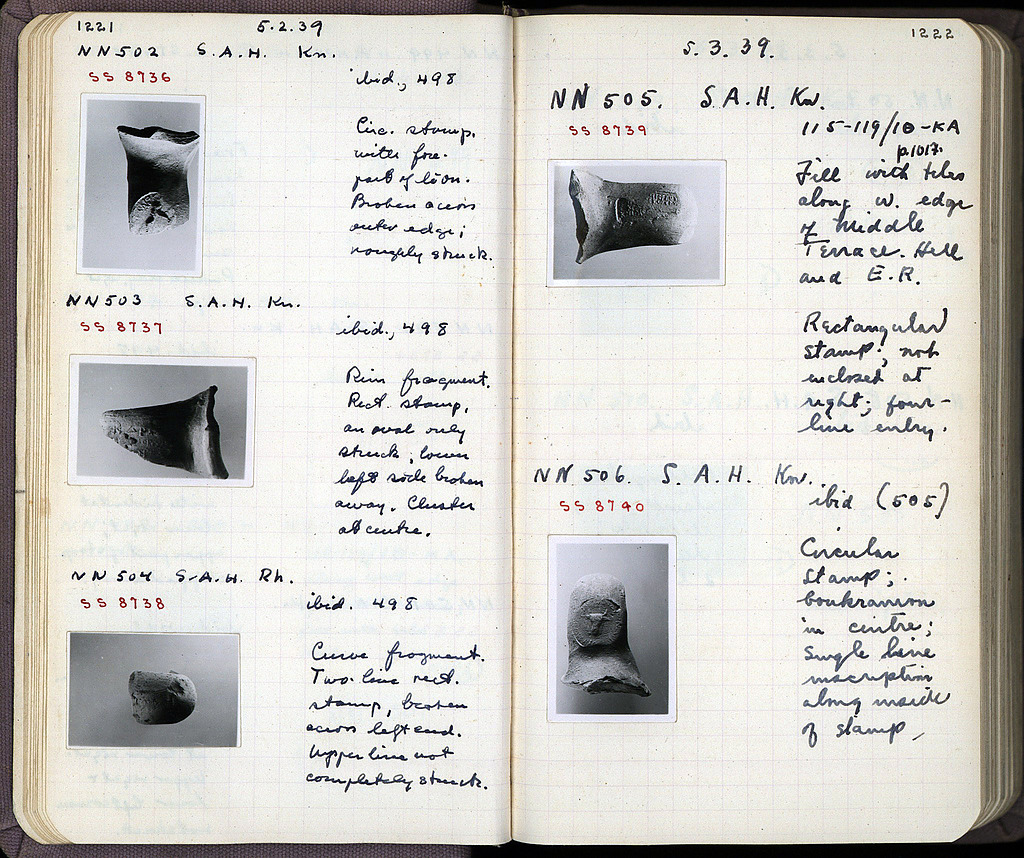 1221
5.2.39
NN502 S.A.H. Kn.
SS 8736
ibid., 498
Circ. stamp.
with fore-
part of lion.
Broken across
outer edge;
roughly struck.
NN503 S.A.H. Kn.
SS 8737
ibid., 498
Rim fragment.
Rect. stamp,
an oval only
struck, lower
left side broken
away. Cluster
at centre.
NN504 S.A.H. Rh.
SS 8738
ibid. 498
Curve fragment.
Two-line rect.
stamp, broken
across left end.
Upper line not
completely struck.
1222
5.3.39.
NN 505. S.A.H. Kn.
SS 8739
115-119/10-KA
p.1017.
Fill with tiles
along w. edge
of Middle
Terrace. Hell
and E.R.
Rectangular
stamp; not
enclosed at
right; four-
line entry.
NN 506. S.A.H. Kn.
SS 8740
ibid (505)
Circular
stamp;
boukranion
in centre;
Single line
inscription
along inside
of stamp.